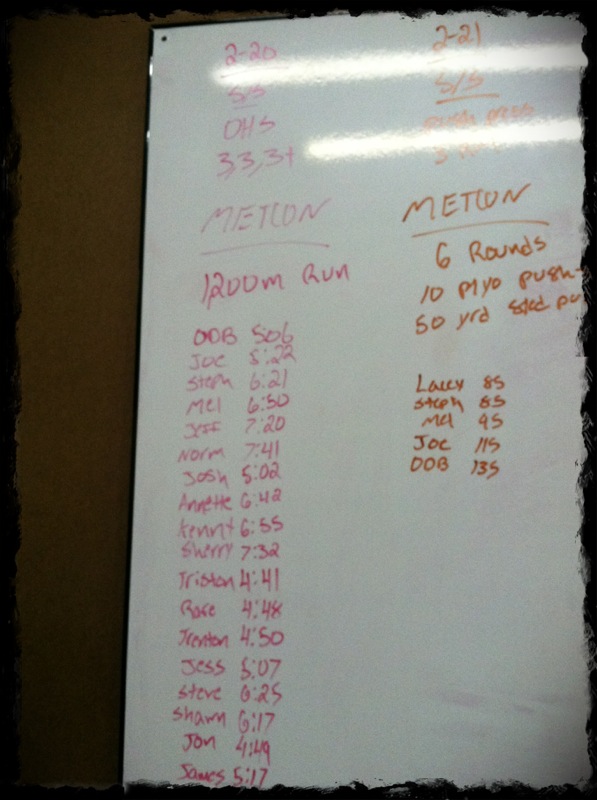 2-20
S/S
OHS
3,3,3+
METCON
1200m Run
ODB 506
Joe 5:22
Steph 6:21
Mel 6:50
Jeff 7:20
Norm 7:41
Josh 5:02
Annette 6:42
Kenny 6:55
Sherry 7:32
Triston 4:41
Rose 4:48
Trenton 4:50
Jess 5:07
Steve 6:25
Shawn 6:17
Jon 4:49
James 5:17
2-21
S/S
push press
3
METCON
6 Rounds
10 plyo push-
50 yrd sled pu
Lacey 85
Steph 85
Mel 95
Joe 115
ODB 135